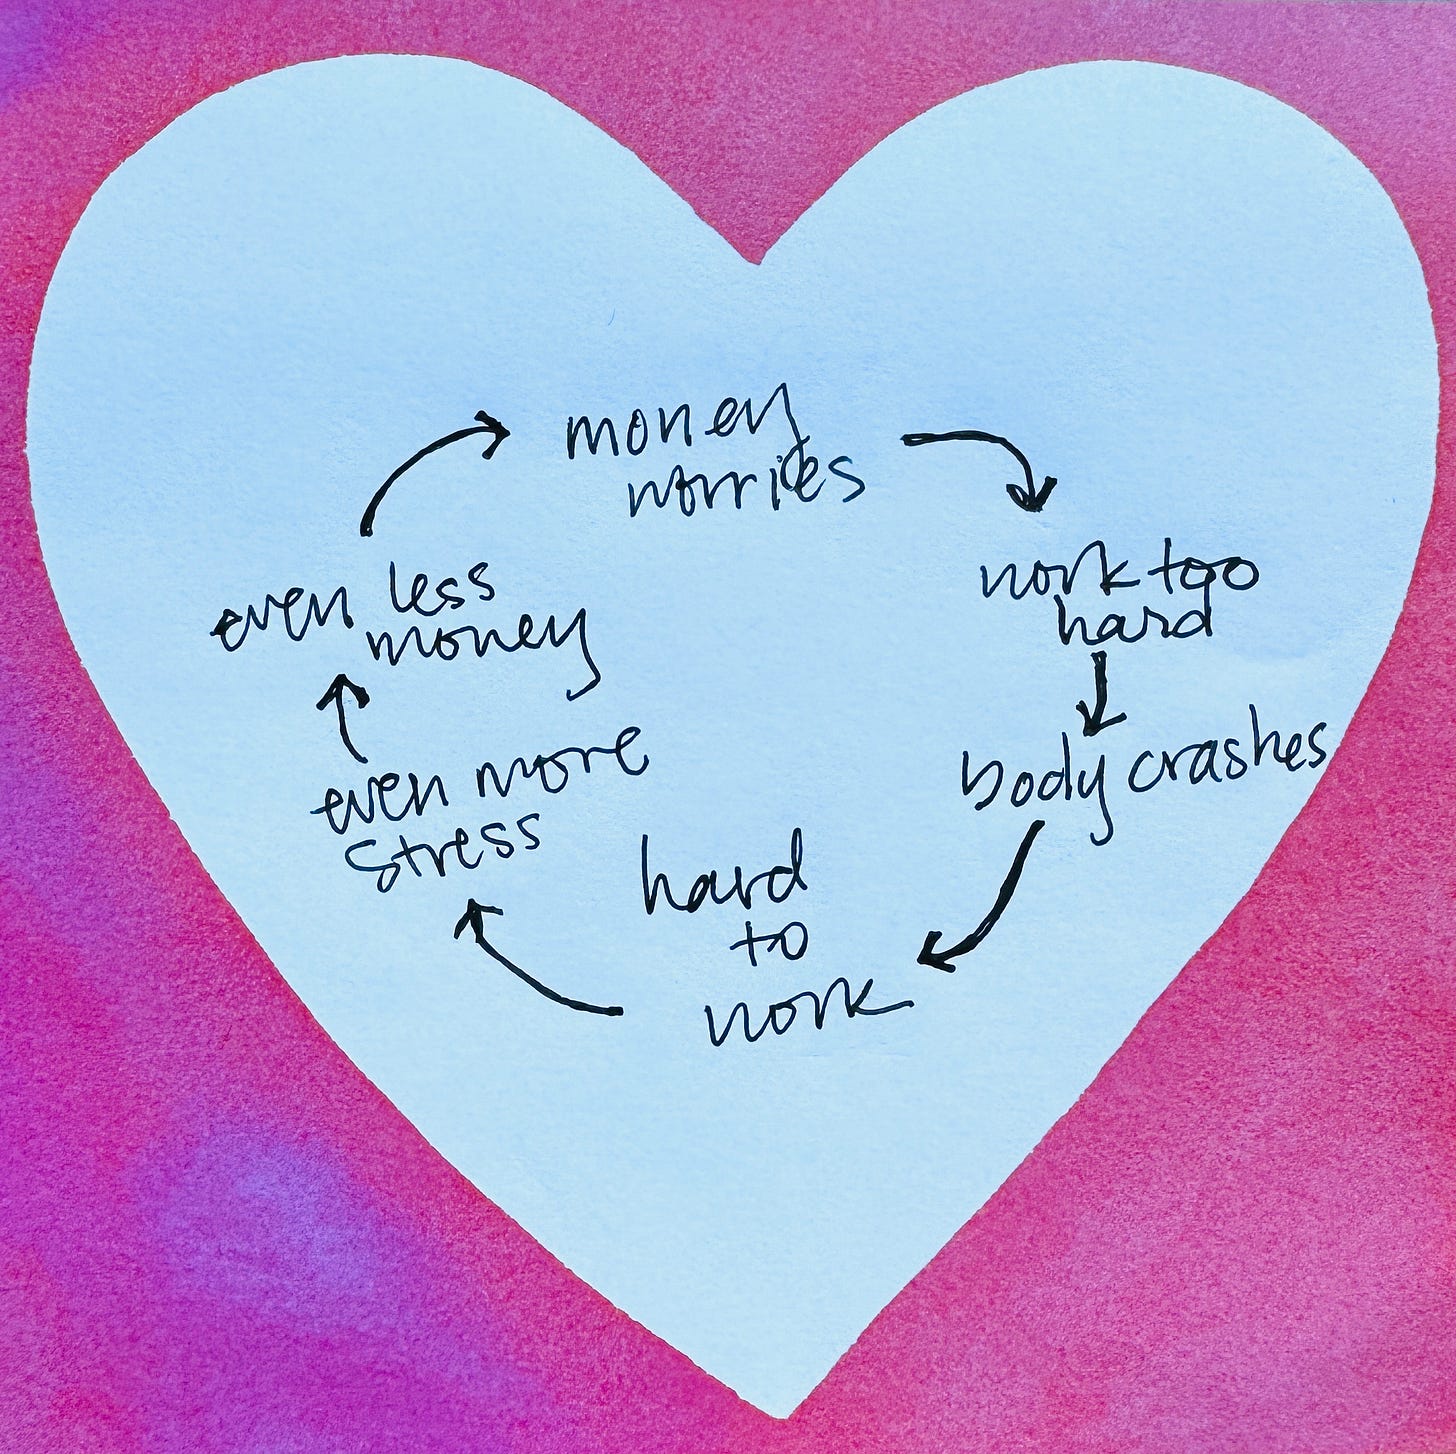 money
worries
work too
hard
body crashes
hard
to
work
even more
stress
even less
money